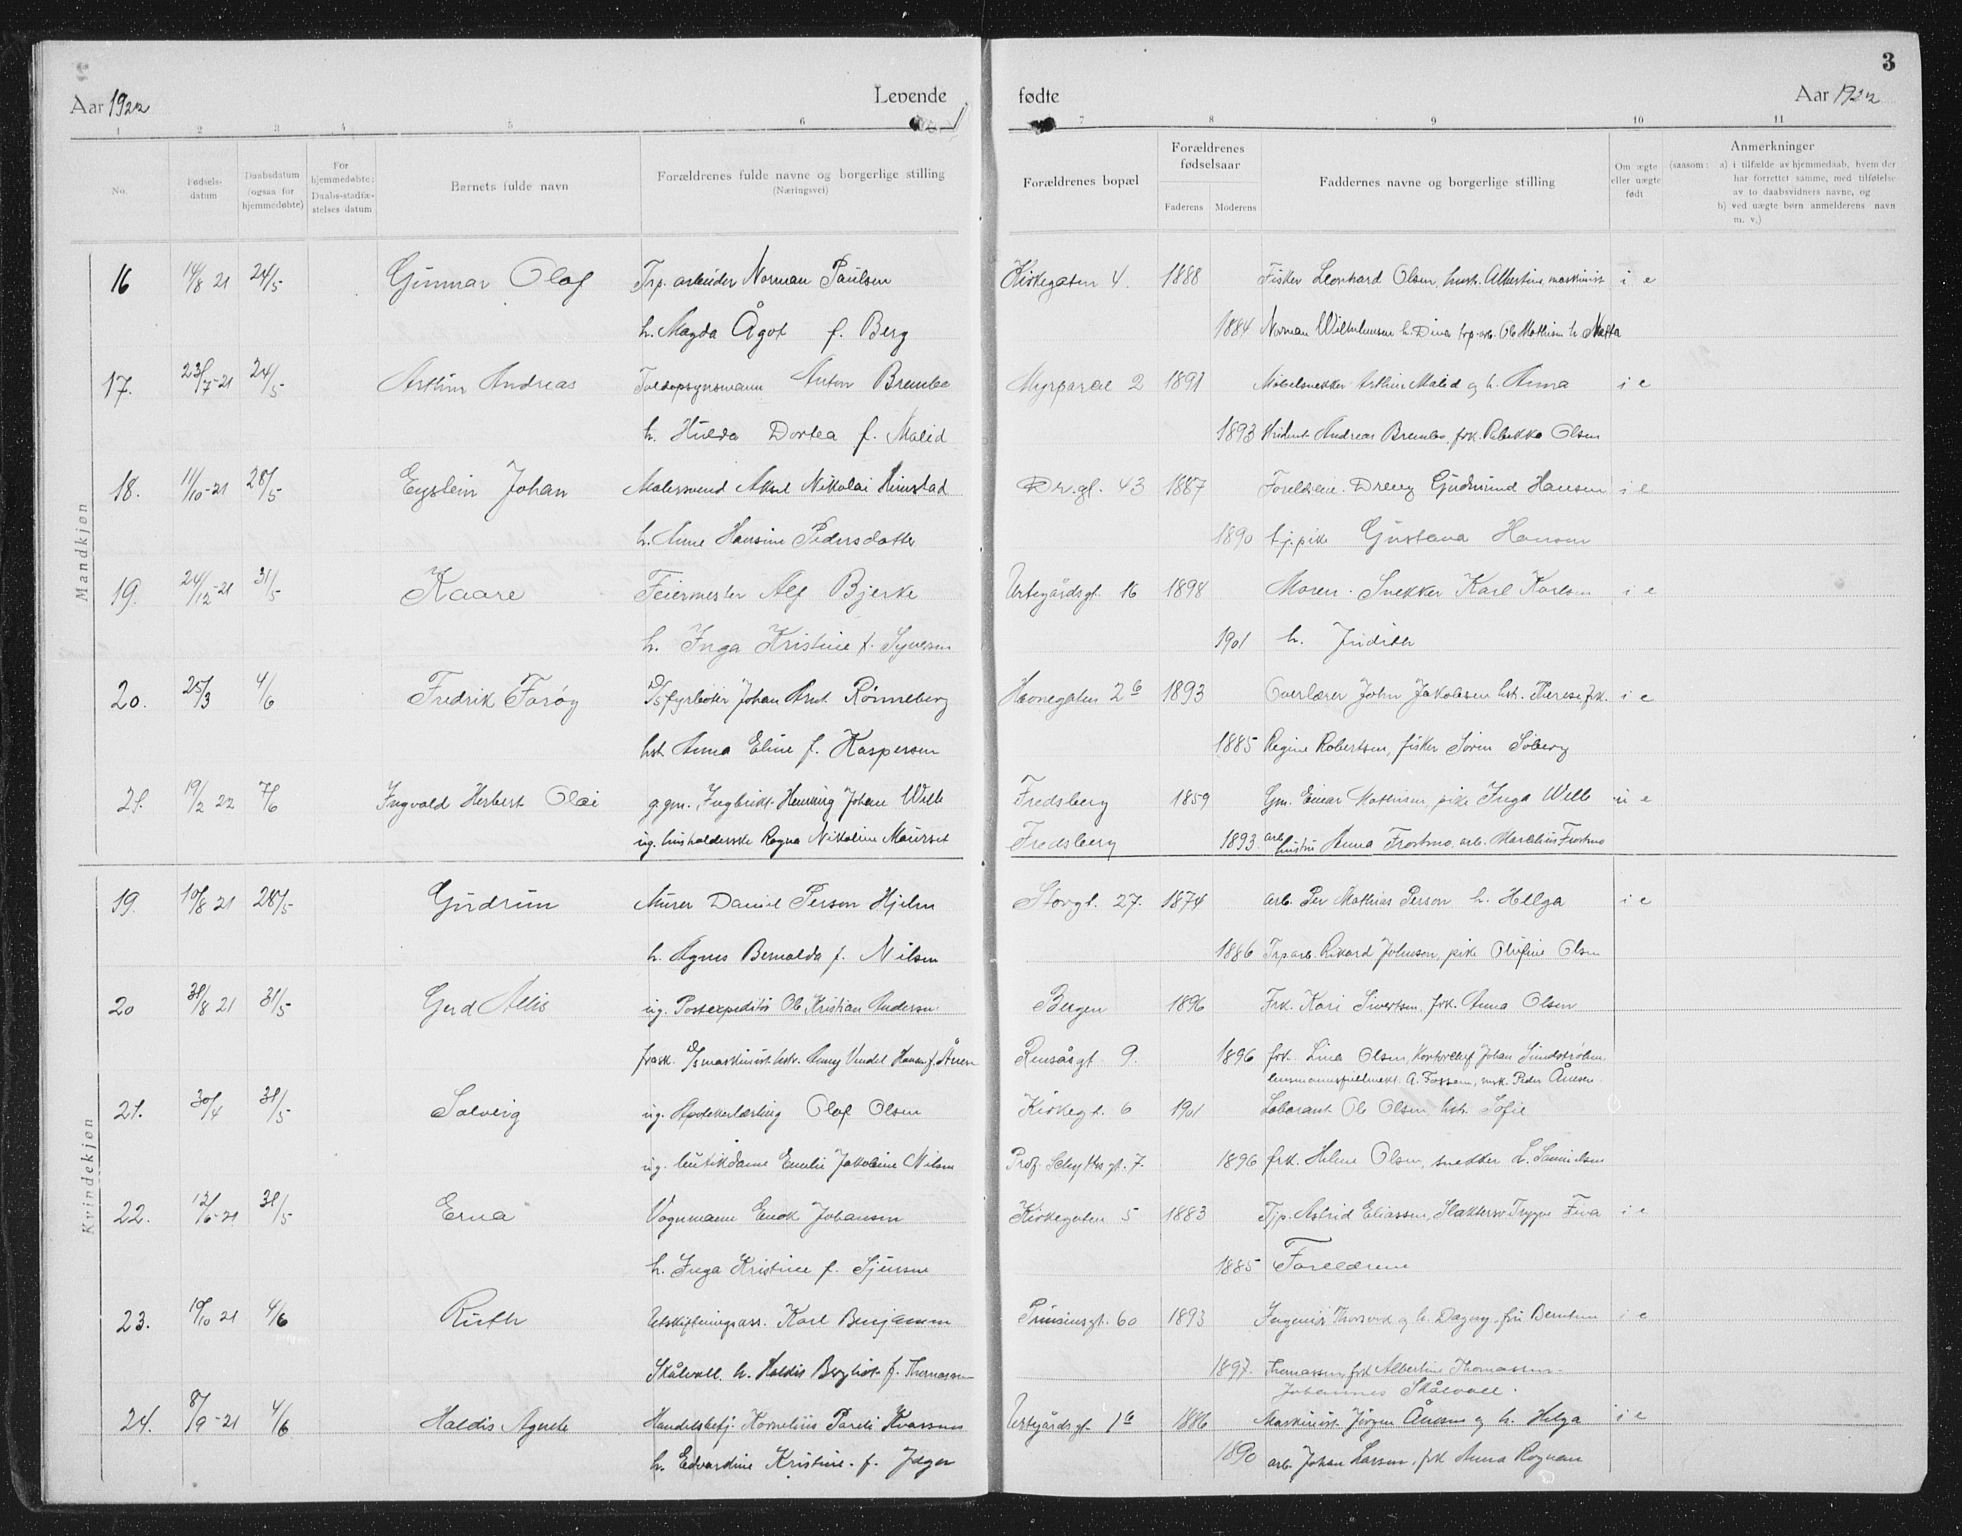 Aar 1922
Levende
fødte
Aar 1922
3
1 2 3 4 5 6 7 8 9 10 11
No.
Fødsels-
datum
Daabsdatum
(ogsaa for
hjemmedøbte)
For
hjemmedøbte:
Daabs-stadfæ-
stelses datum
Barnets fulde navn
Forældrenes fulde navne og borgerlige stilling
(Næringsvei)
Forældrenes bopæl
Forældrenes
fødselsaar
Faderens Moderens
Faddernes navne og borgerlige stilling
Om ægte
eller uægte
født
Anmerkninger
(saasom: a) i tilfælde av hjemmedaab, hvem der
har forrettet samme, med tilføielse
av to daabsvidners navne, og
b) ved uægte børn anmelderens navn
m. v.)
Mandkjøn
16 14/8 21 24/5 Gunnar Olaf Trp. arbeider Norman Paulsen Kirkegaten 4. 1888 Fisker Leonhard Olsen, hustr. Albertine, maskinist i e
h. Magda Ågot f. Berg 1884 Norman Wilhelmsen h. Dina trp. arb. Ole Mathisen h.
17. 23/7-21 24/5 Arthur Andreas Toldopsynsmann Anton Brembo 2 1891 Møbelsnekker Arthur Malid og h. Anna i e
h. Hulda Dortea f. Malid 1893 Andreas Brembo, frk. Rebekka Olsen
18. 11/10-21 28/5 Eystein Johan Malersvend Aksel Nikolai Rinstad Dr. gt. 43 1887 Foreldrene. Dreng Gudmund Hansen i e
h. Anne Hansine Pedersdatter 1890 tj.pike Gustava Hansen
19. 24/12-21 31/5 Kaare Feiermester Alf Bjerke Urtegårdsgt. 16 1898 Moren. Snekker Karl Karlsen i e
h. Inga Kristine f. Syversen 1901 h. Judith
20. 25/3 4/6 Fredrik Farøy D/S fyrbøter Johan Arnt Rønneberg Havnegaten 2b 1893 Overlærer John Jakobsen hst. Therese, frk. i e
hst. Anna Eline f. Kaspersen 1885 Regine Robertsen, fisker Søren Soberg
21. 19/2 22 7/6 Ingvald Herbert Olai g.gm. Ingbrikt Henning Johan Welle Fredsberg 1859 Gm. Einar Mathisen, pike Inga Welle u e
ug. husholderske Ragna Nikoline Maurset Fredsberg 1893. arb. hustru Anna Frostmo, arb. Marelius Frostmo
Kvindekjøn
19. 10/8 21 28/5 Gudrun Murer Daniel Person Hjelm Storgt. 27. 1874 arb. Per Mathias Person h. Helga i e
h. Agnes Bernalda f. Nilsen 1886 Trp arb. Rikard Johnsson, pike Olufine Olsen
20 31/8 21 31/5 Gerd Allis ug. Postexpeditør Ole Kristian Andersen Bergen 1896 Frk. Kari Sivertsen, frk. Anna Olsen
frask. D/S maskinist hstr. Anny Vendel Hansen f. Ånesen Rensåsgt. 9. 1896 frk. Lina Olsen, Kontorchef Johan Sundstrøm
lensmannsfullmekt. A. Fossem, msk. Peder Ånesen
21. 30/4 31/5 Solveig ug. Apotekerlærling Olaf Olsen Kirkegt. 6 1901 Laborant Ole Olsen, hst. Sofie
ug. butikdame Emelie Jakobine Nilsen Prof. Schyttes gt. 7. 1896 frk. Helene Olsen, snekker L. Samuelsen
22. 12/6-21 31/5 Erna Vognmann Enok Johansen Kirkegaten 5 1883 Tjp. Astrid Eliassen, Slaktersv. Trygve Fiva i e
h. Inga Kristine f. Sjursen 1885 Foreldrene
23. 10/10 21 4/6 Ruth Utskiftningsass. Karl Benjamin Prinsensgt. 60 1893 Ingeniør Thorvald og h. Dagny, fru Berntine i e
Skålvoll h. Haldis Bergliot f. Thomassen 1897. Thomassen, frk Albertine Thomassen.
Johannes Skålvoll.
24. 8/9-21 4/6 Haldis Agnete Handelsbetj. Kornelius Pareli Kvassnes Urtegårdsgt. 1b 1886 Maskinist Jørgen Ånesen og h. Helga i e
h. Edvardine Kristine. f. Jæger 1890 arb. Johan Larsen, frk Anna Rognan